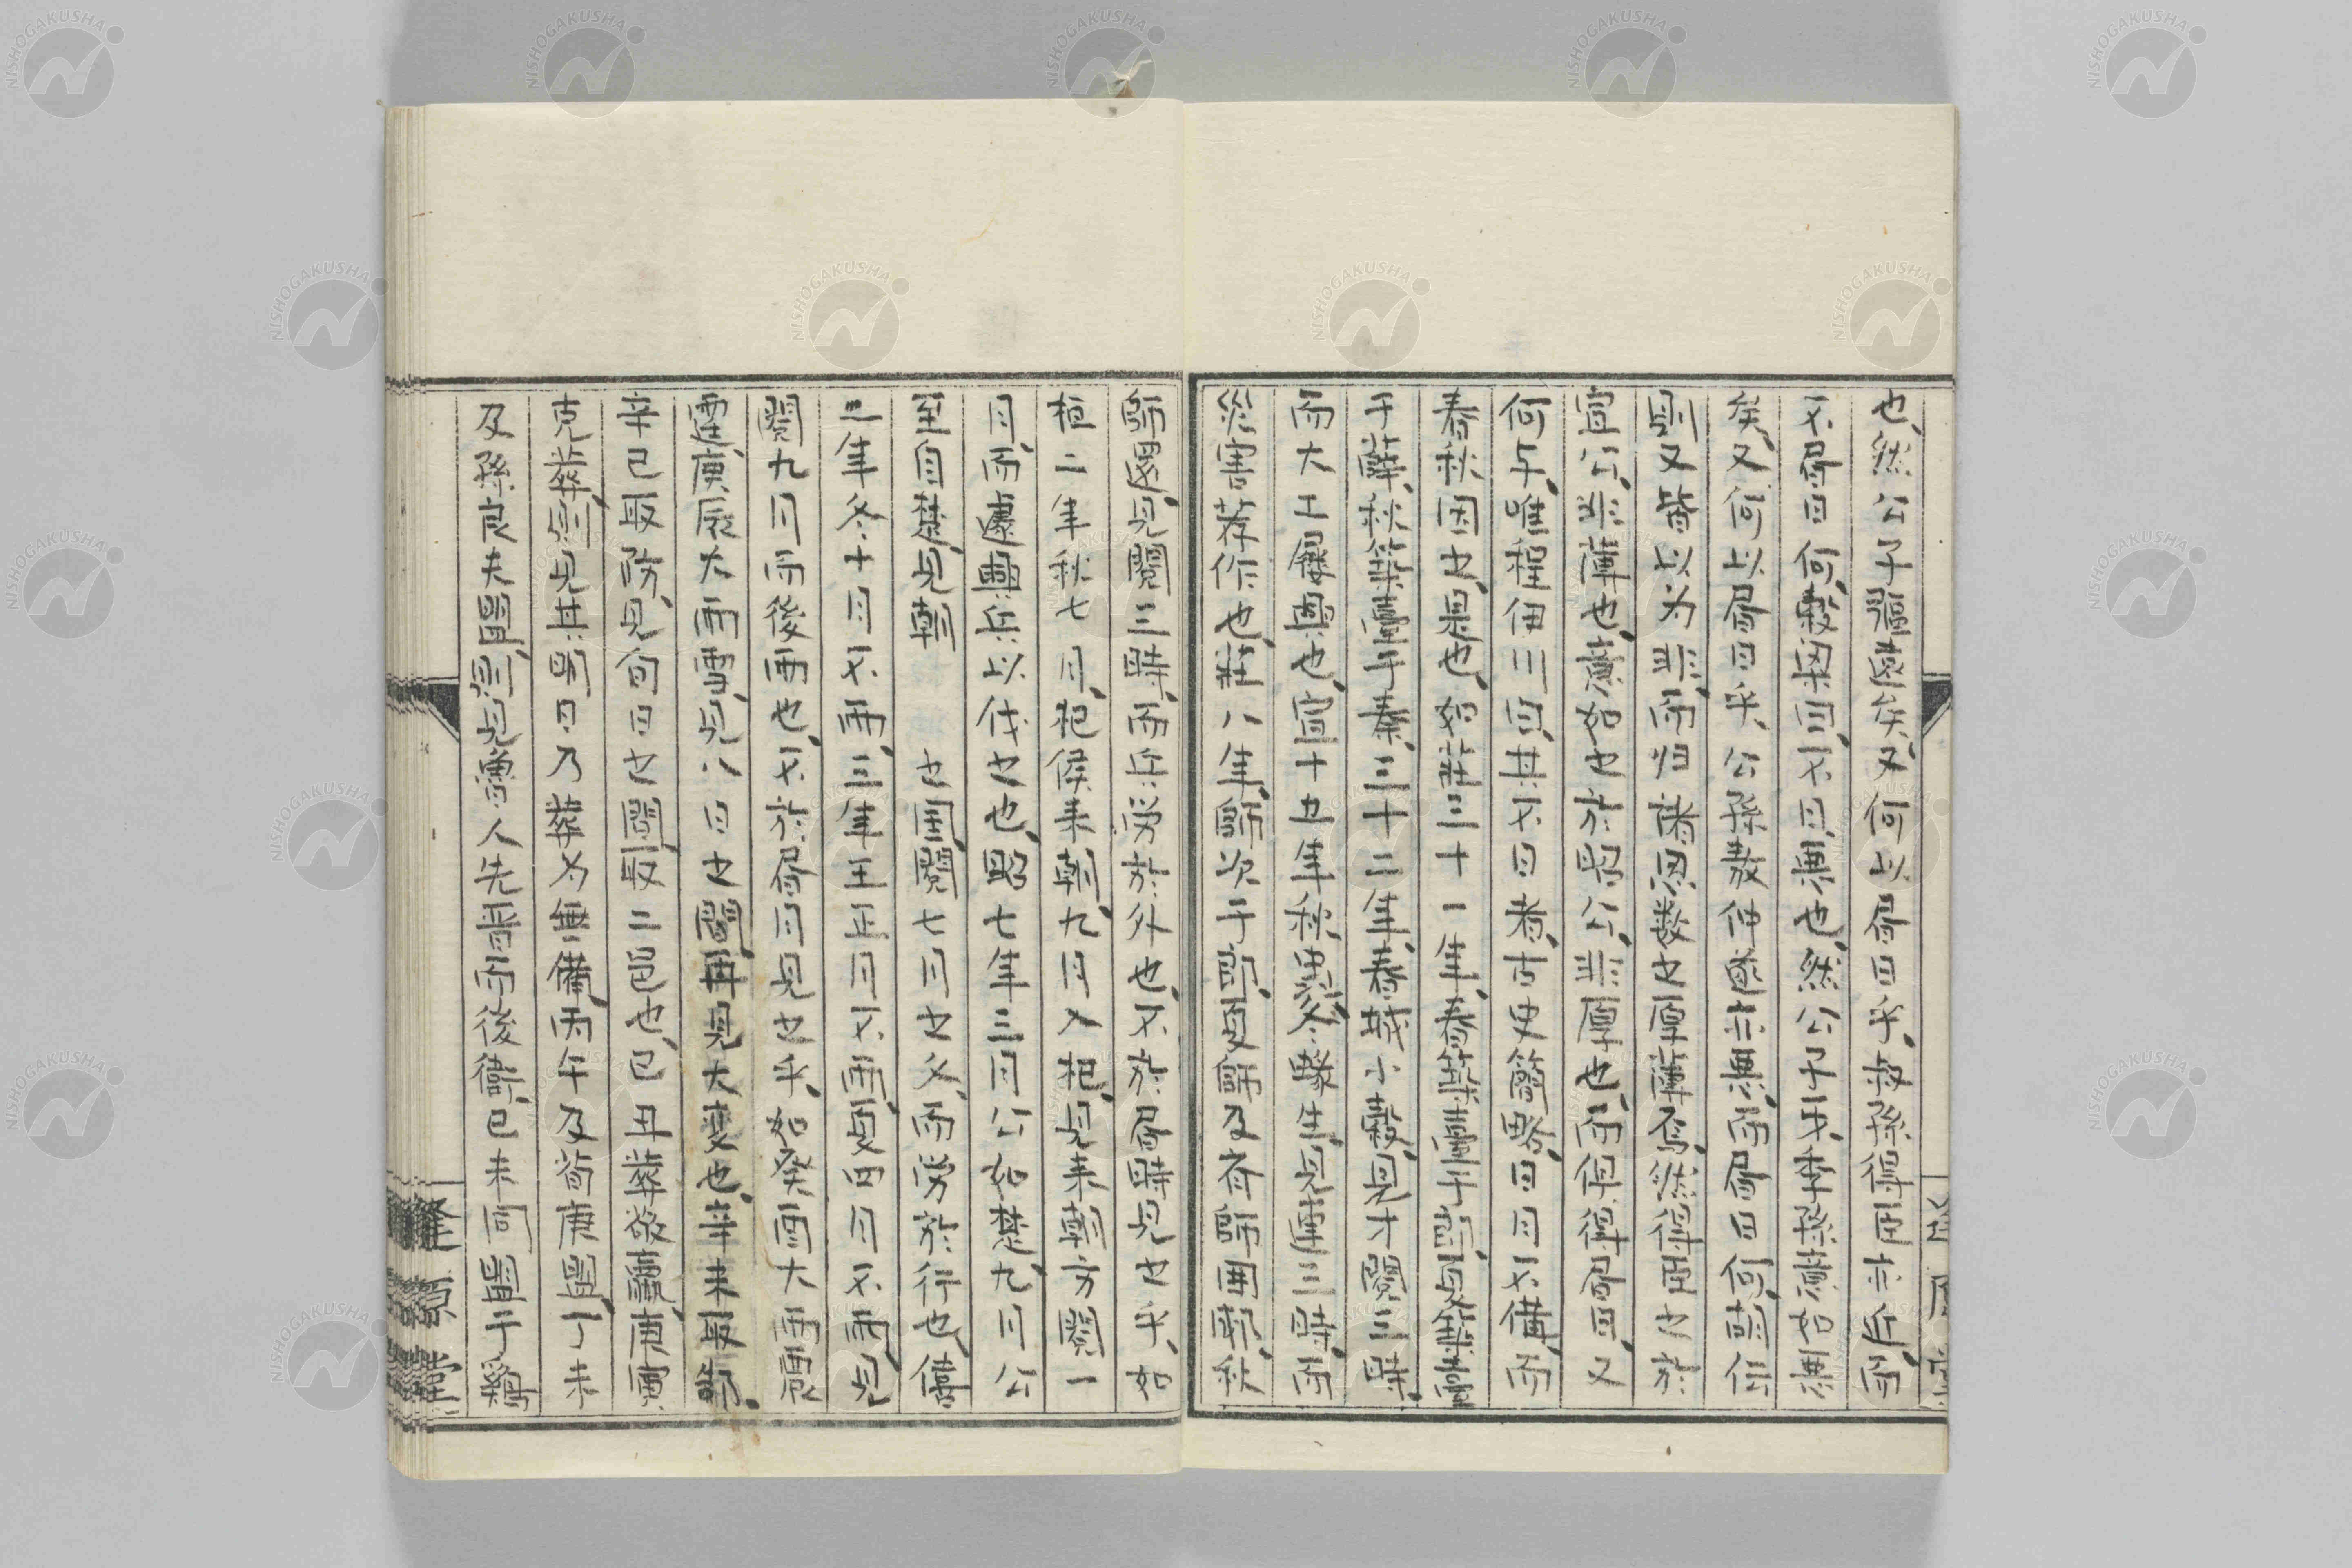 也、然公子彄遠矣、又何以書日乎、叔孫得臣亦近、而
不書日何、穀梁曰、不日、惡也、然公子牙、季孫意如惡
矣、又何以書日乎、公孫敖仲遂亦惡、而書日何、胡傳
則又皆以为非、而归諸恩数之厚薄焉、然得臣之於
宣公、非薄也、意如之於昭公、非厚也、而俱得書日、又
何与、唯程伊川曰、其不日者、古史簡略、日月不備、而
春秋因之、是也、如莊三十一年、春築臺于郎、夏築臺
于薛、秋築臺于秦、三十二年、春城小穀、見才閱三時、
而大工屢興也、宣十五年秋、螽、冬、蝝生、見連三時、而
災害荐作也、莊八年、師次于郎、夏師及齊師囲郕、秋
師還、見閱三時、而兵労於外也、不於書時見之乎、如
桓二年秋七月、杞侯来朝、九月入杞、見来朝方閱一
月、而遽興兵以伐之也、昭七年三月公如楚、九月公
至自楚、見朝 之国、閱七月之久、而労於行也、僖
二年冬十月不雨、三年王正月不雨、夏四月不雨、見
閱九月而後雨也、不於書月見之乎、如癸酉大雨震
電、庚辰大雨雪、見八日之間、再見大変也、辛未取郜、
辛巳取防、見旬日之間、取二邑也、己丑葬敬嬴、庚寅
克葬、則見其明日乃葬为無備、丙午及荀庚盟、丁未
及孫良夫盟、則見魯人先晋而後衛、己未同盟于雞